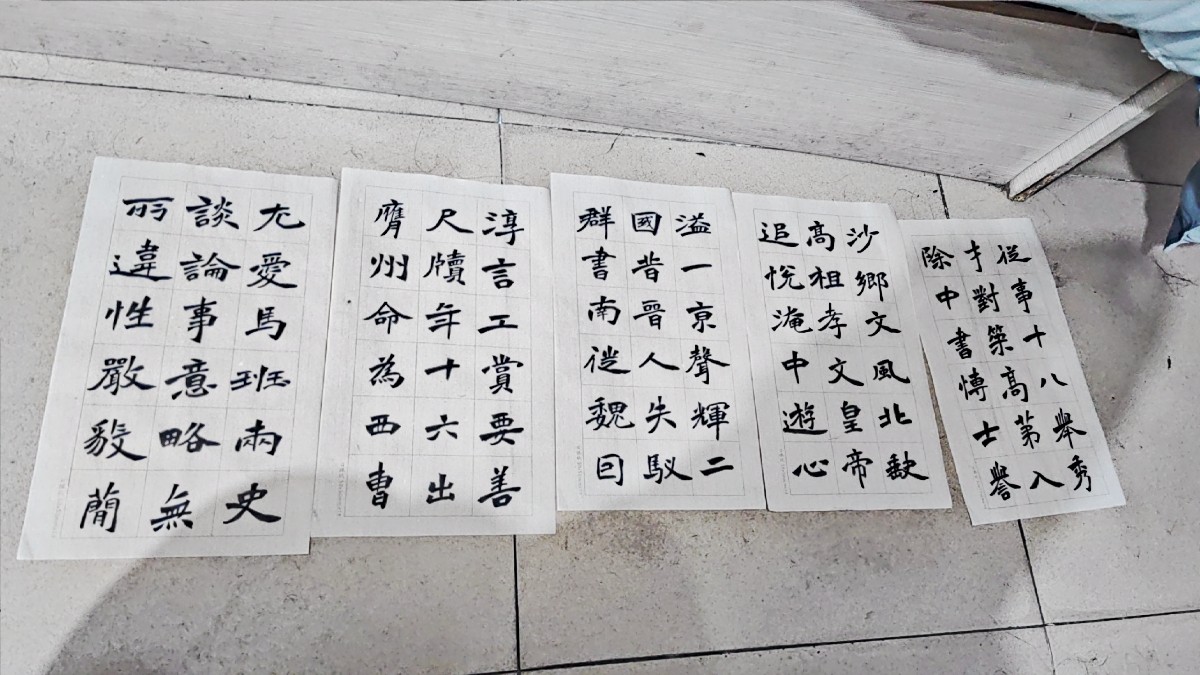 尤愛馬班兩史
談論事意略無
所違性嚴毅簡
淳言工賞要善
尺牘年十六出
膺州命為西曹
溢一京聲輝二
國昔晉人失馭
群書南徙魏囙
沙鄉文風北缺
高祖孝文皇帝
追悅淹中遊心
從事十八舉秀
才對策高第入
除中書博士譽